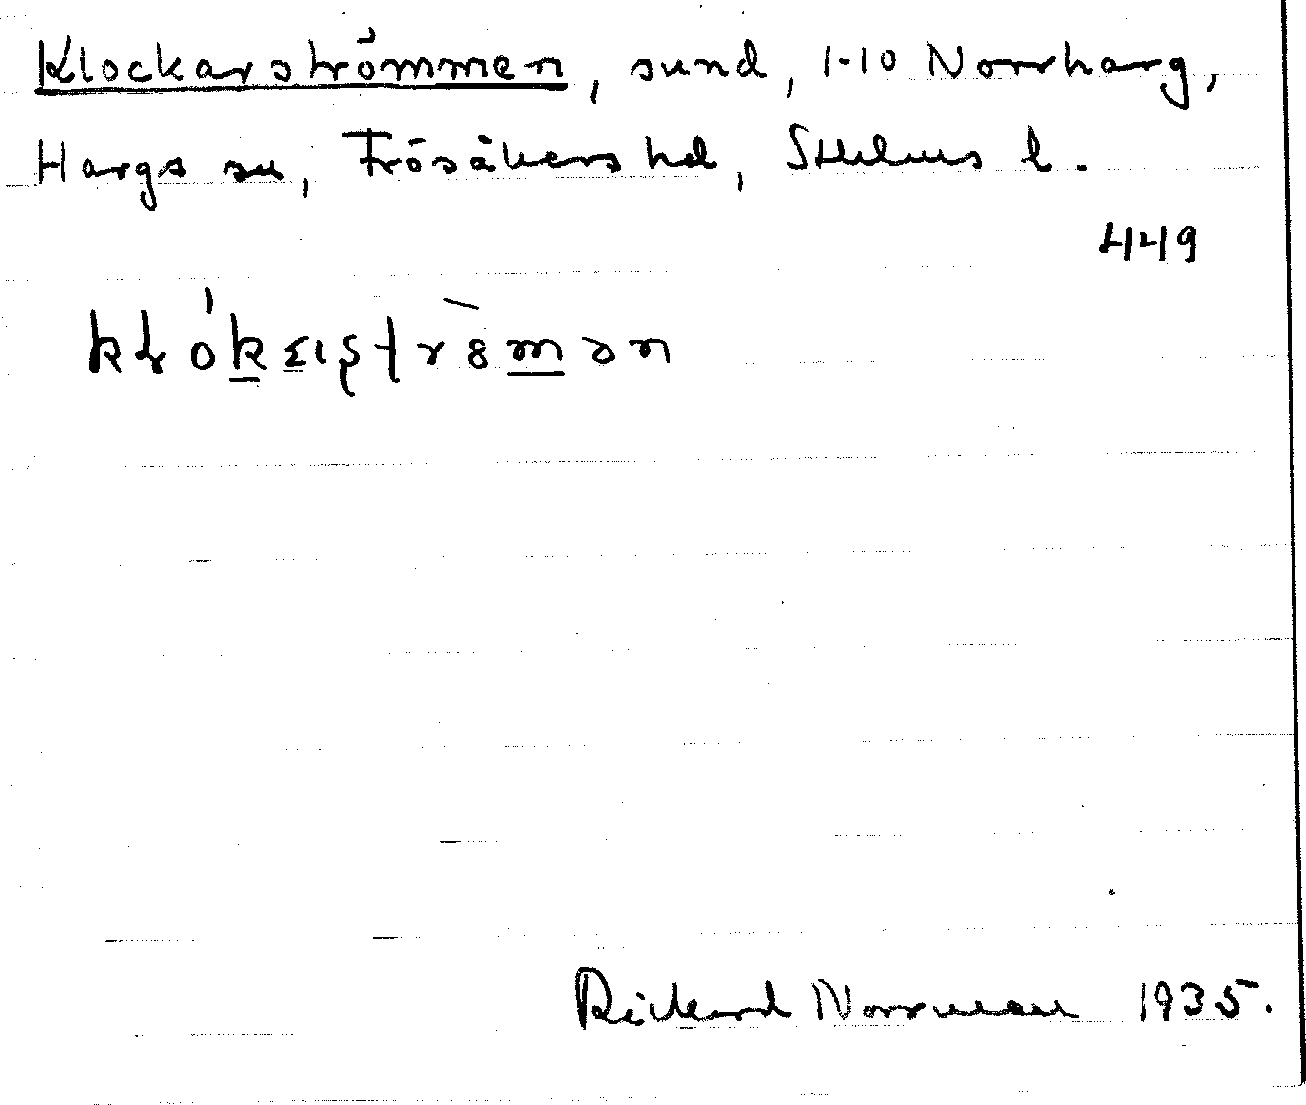 Klockarströmmen, sund, 1-10 Norrharg,
Hargs sn, Frösåkers hd, Sthlms l.
449
Rickard Norrman 1935.